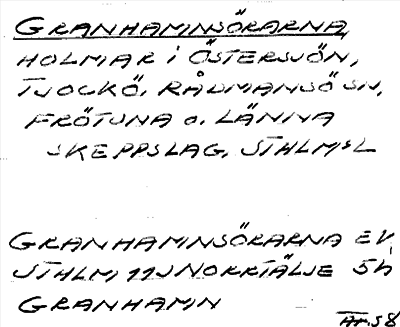 GRANHAMNSÖRARNA,
HOLMAR I ÖSTERSJÖN,
TJOCKÖ, RÅDMANSÖ SN,
FRÖTUNA O. LÄNNA
SKEPPSLAG, STHLMSL
GRANHAMNSÖRARNA EV,
STHLM 11J NORRTÄLJE 5h
GRANHAMN